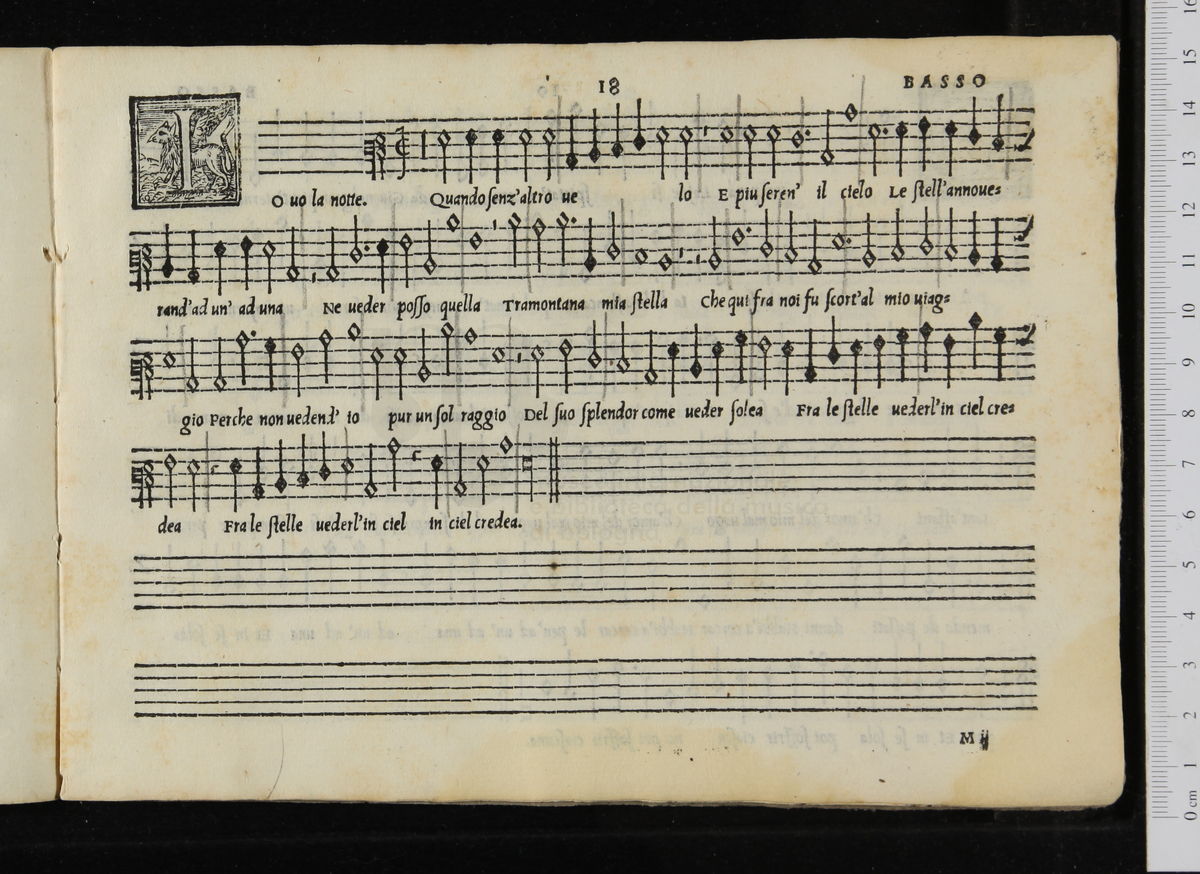 18 BASSO
IO vo la notte. Quando senz'altro ve lo E piu seren' il cielo Le stell'annove=
rand'ad un' ad una Ne ueder posso quella Tramontana mia stella Che qui fra noi fu scort'al mio uiag=
gio Perche non uedend' io pur un sol raggio Del suo splendor come ueder solea Fra le stelle uederl'in ciel cre=
dea Fra le stelle uederl'in ciel in ciel credea.
M ij